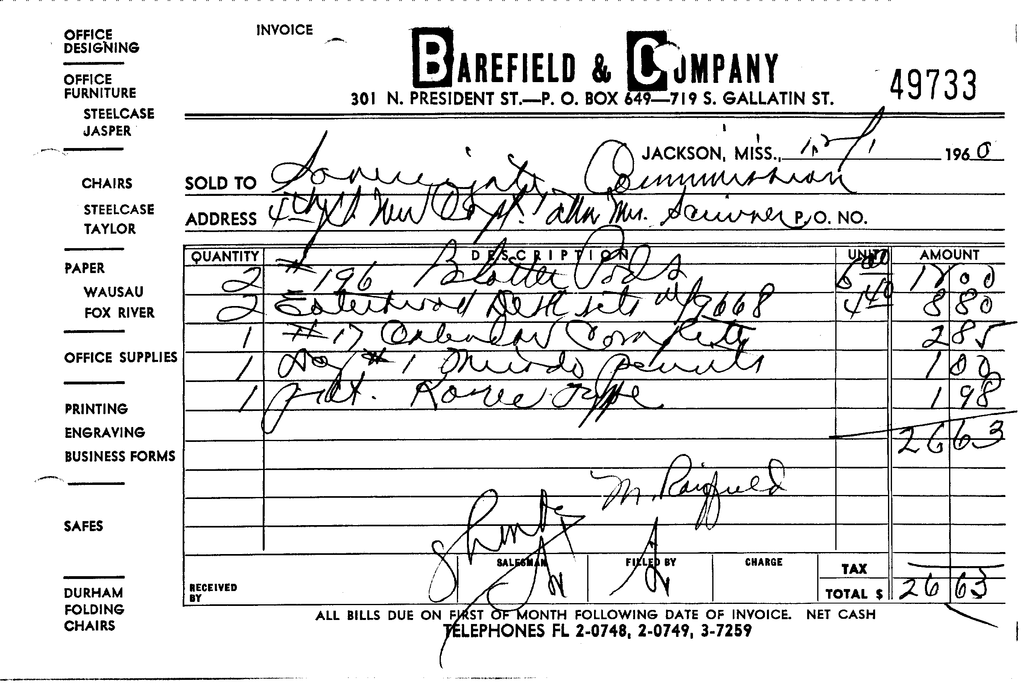 INVOICE
BAREFIELD & COMPANY
301 N. PRESIDENT ST.—P. O. BOX 649—719 S. GALLATIN ST.
49733
OFFICE
DESIGNING
OFFICE
FURNITURE
STEELCASE
JASPER
CHAIRS
STEELCASE
TAYLOR
PAPER
WAUSAU
FOX RIVER
OFFICE SUPPLIES
PRINTING
ENGRAVING
BUSINESS FORMS
SAFES
DURHAM
FOLDING
CHAIRS
JACKSON, MISS., 12/1 1960
SOLD TO Sovereignty Commission
ADDRESS 4th New Cap. attn Mrs. Scrivner P. O. NO.
QUANTITY DESCRIPTION UNIT AMOUNT
2 #196 Blotter Pads 12 00
2 Esterbrook Desk sets w/9668 4 40 8 80
1 #17 Calendar Complete 2 85
1 Doz #1 Mirado pencils 1 00
1 Tape 1 98
26 63
M.
SALESMAN FILLED BY CHARGE TAX
RECEIVED
BY
TOTAL $ 26 63
ALL BILLS DUE ON FIRST OF MONTH FOLLOWING DATE OF INVOICE. NET CASH
TELEPHONES FL 2-0748, 2-0749, 3-7259